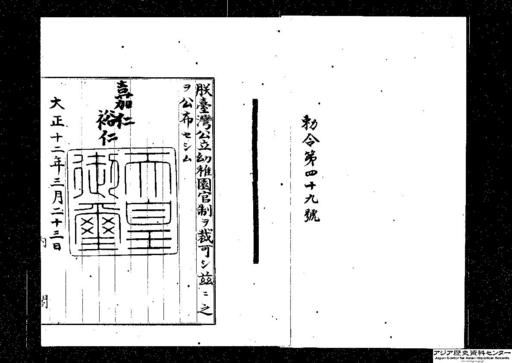 勅令第四十九號
朕臺灣公立幼稚園官制ヲ裁可シ茲ニ之
ヲ公布セシム
嘉仁
裕仁
天皇御璽
大正十二年三月二十三日
内閣
アジア歴史資料センター
Japan Center for Asian Historical Records